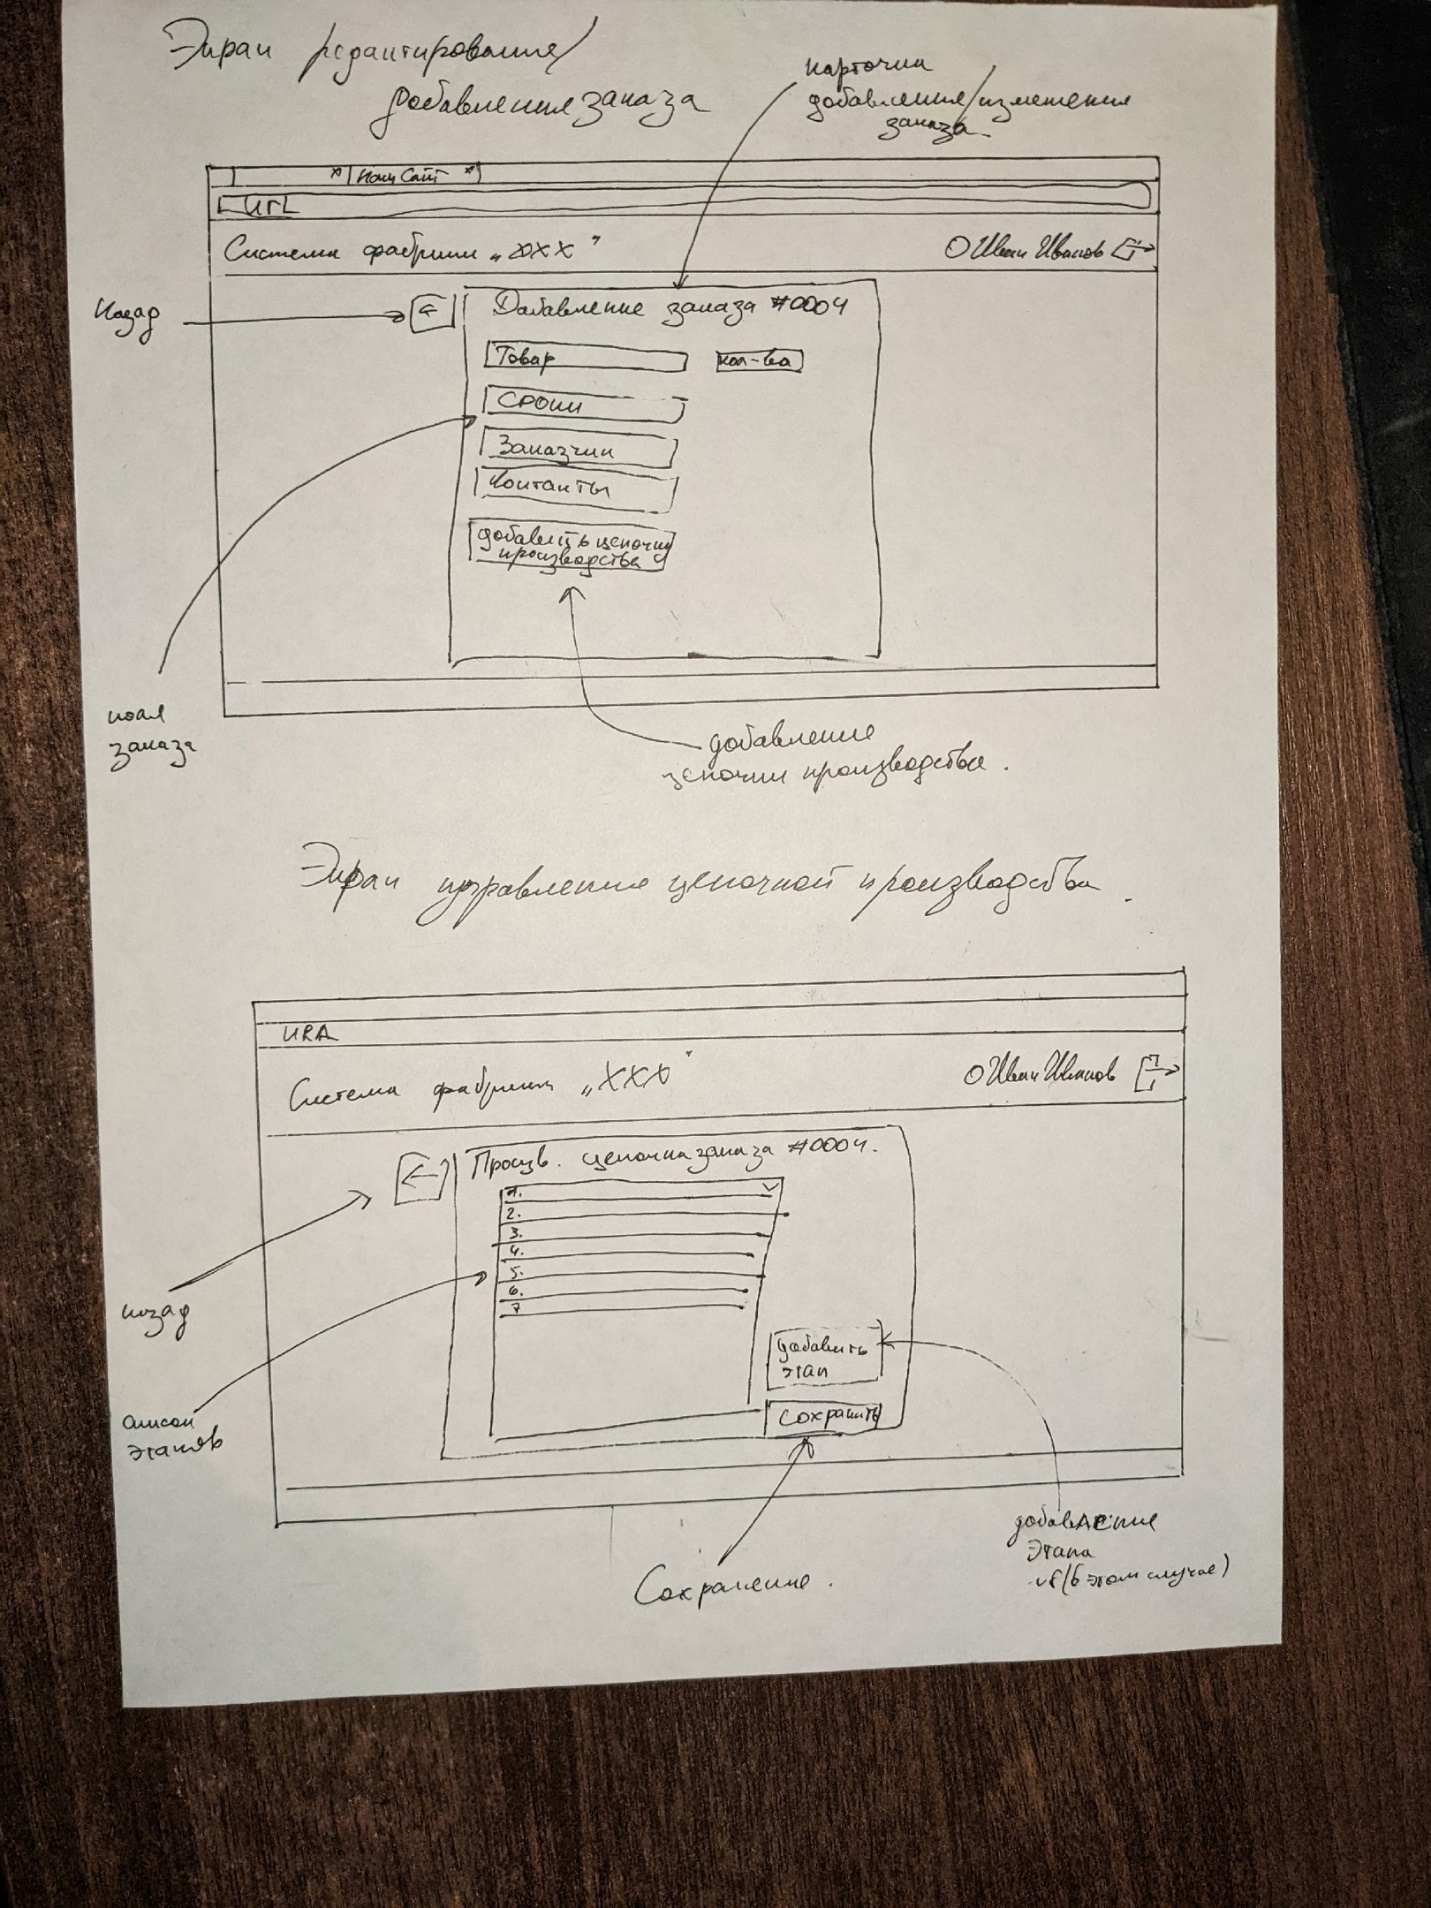 Экран редактирования/
добавления заказа
карточка
добавления/изменения
заказа
Наш Сайт
URL
Система фабрики „XXX“
Иван Иванов
Назад
Добавление заказа #0004
Товар
кол-во
Сроки
Заказчик
Контакты
добавить цепочку
производства
поля
заказа
добавление
цепочки производства.
Экран управления цепочкой производства.
URL
Система фабрики „XXX“
Иван Иванов
Произв. цепочка заказа #0004.
1.
2.
3.
4.
5.
6.
7
назад
добавить
этап
Сохранить
список
этапов
добавление
этапа
(в этом случае)
Сохранение.